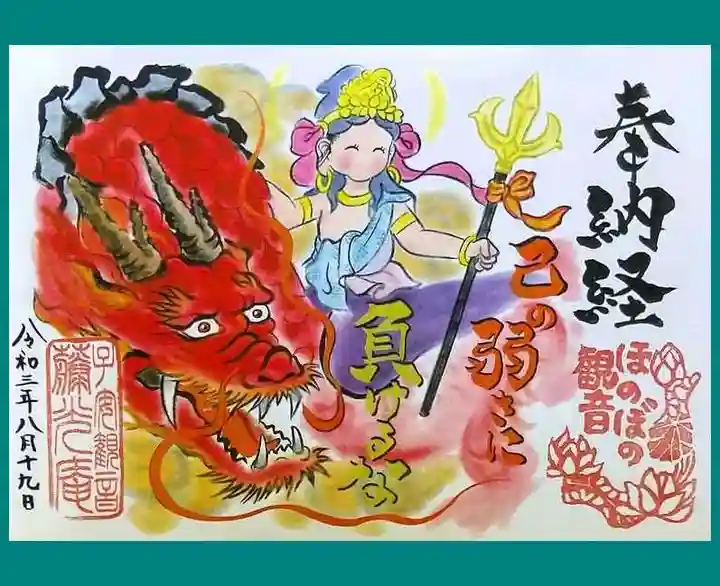 奉納経
ほのぼの
観音
己の弱さに
負けるな
子安観音
彌光庵
令和三年八月十九日